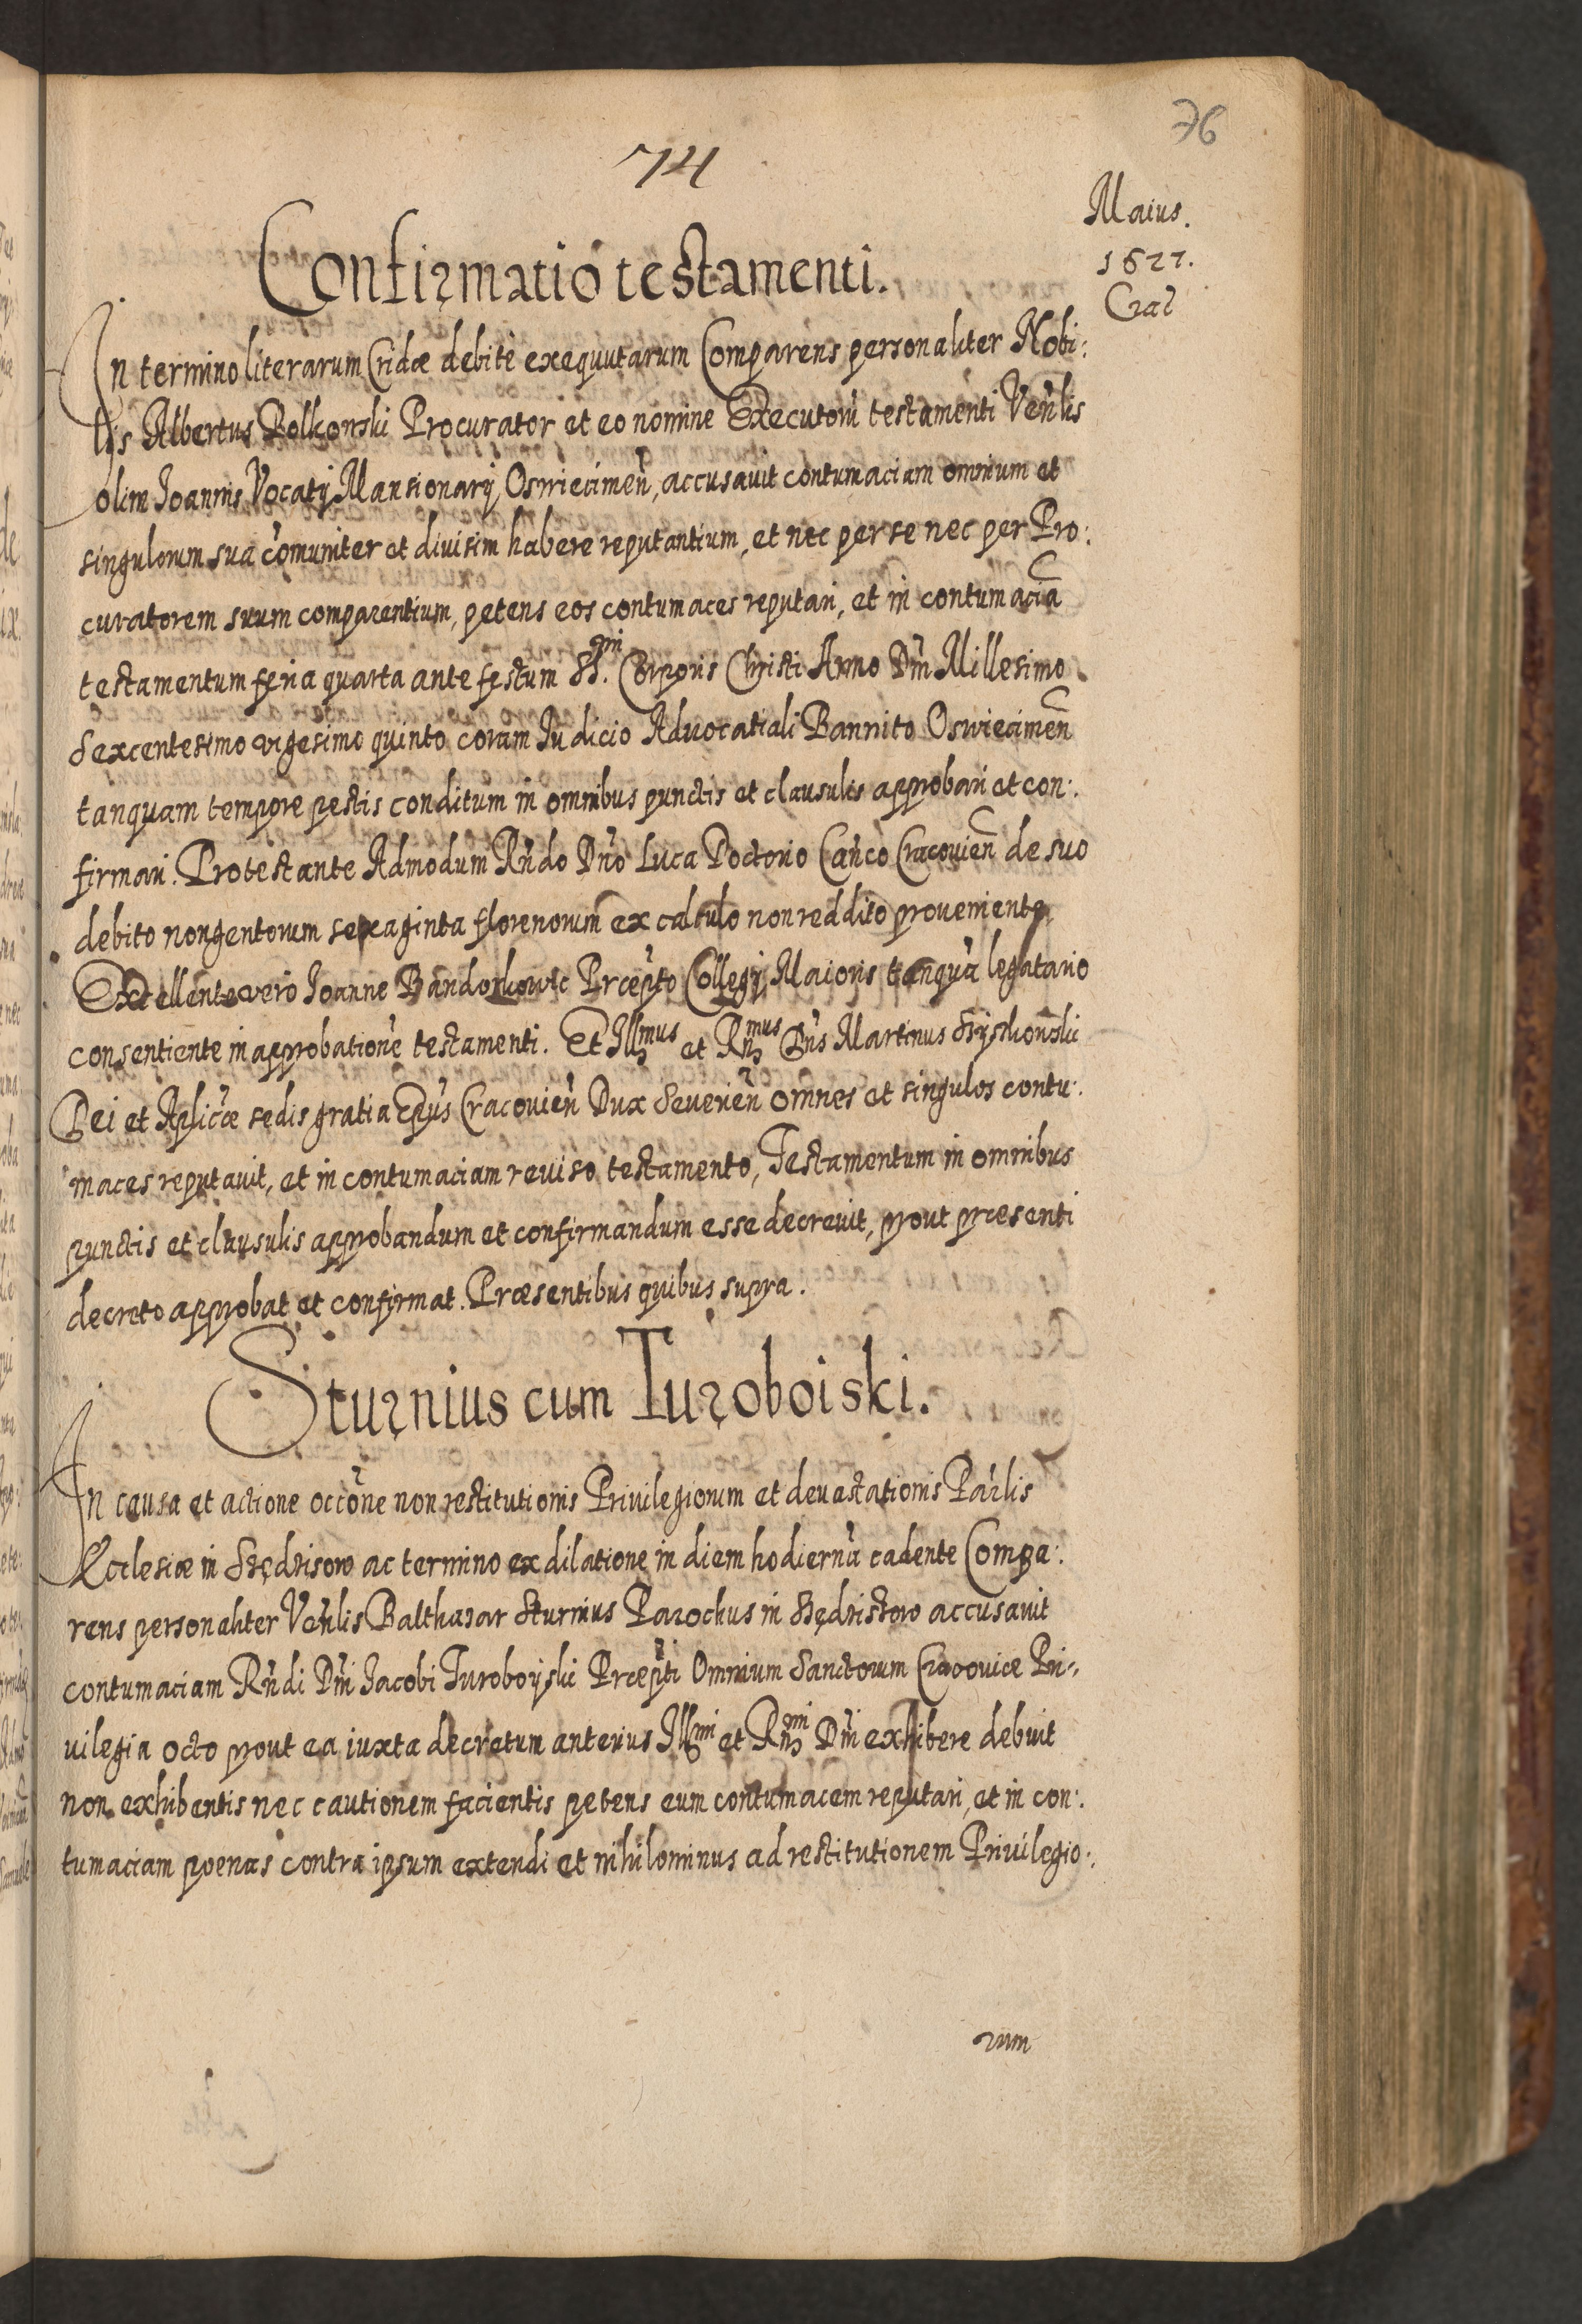 76
74
Maius.
1627.
Crac
Confirmatio testamenti.
In termino literarum Cridæ debitè exequutarum Comparens personaliter Nobi:
lis Albertus Rolkonski Procurator et eo nomine Executorũ testamenti Ven̄lis
olim Joannis Vocatÿ Mansionarÿ Oswiecimen̄, accusavit contumaciam omnium et
singulorum sua com̄uniter et divisim habere reputantium, et nec per se nec per Pro:
curatorem suum comparentium, petens eos contumaces reputari, et in contumaciã
testamentum feria quarta ante festum SS.mi Corporis Christi Anno Dn̄i Millesimo
Sexcentesimo vigesimo quinto coram Judicio Advocatiali Bannito Oswiecimen̄
tanquam tempore pestis conditum in omnibus punctis et clausulis approbari et con:
firmari. Protestante Admodum Rn̄do Dn̄o Luca Doctorio Can̄co Cracovien̄ de suo
debito nongentorum sexaginta florenorum ex calculo non reddito proveniente,
Excellente verò Joanne Bandorkowic Præp̄to Collegÿ Maioris tanquã legatario
consentiente in approbatione testamenti. Et Illmus et Rn̄mus Dn̄s Martinus Szÿszkonski
Dei et Aplicæ sedis gratia Ep̄us Cracovien̄ Dux Severien̄ omnes et singulos contu:
maces reputavit, et in contumaciam reviso testamento, Testamentum in omnibus
punctis et clausulis approbandum et confirmandum esse decrevit, prout præsenti
decreto approbat et confirmat. Præsentibus quibus supra.
Sturnius cum Turoboiski.
In causa et actione occõne non restitutionis Privilegiorum et devastationis Par̄lis
Ecclesiæ in ac termino ex dilatione in diem hodiernã cadente Compa:
rens personaliter Ven̄lis Balthazar Sturnius Parochus in accusavit
contumaciam Rn̄di Dn̄i Jacobi Turoboÿski Præp̄ti Omnium Sanctorum Cracoviæ Pri-
vilegia octo prout ea iuxta decretum anterius Illmi et Rn̄mi Dn̄i exhibere debuit
non exhibentis nec cautionem facientis petens eum contumacem reputari, et in con:
tumaciam poenas contra ipsum extendi et nihilominus ad restitutionem Privilegio:
rum